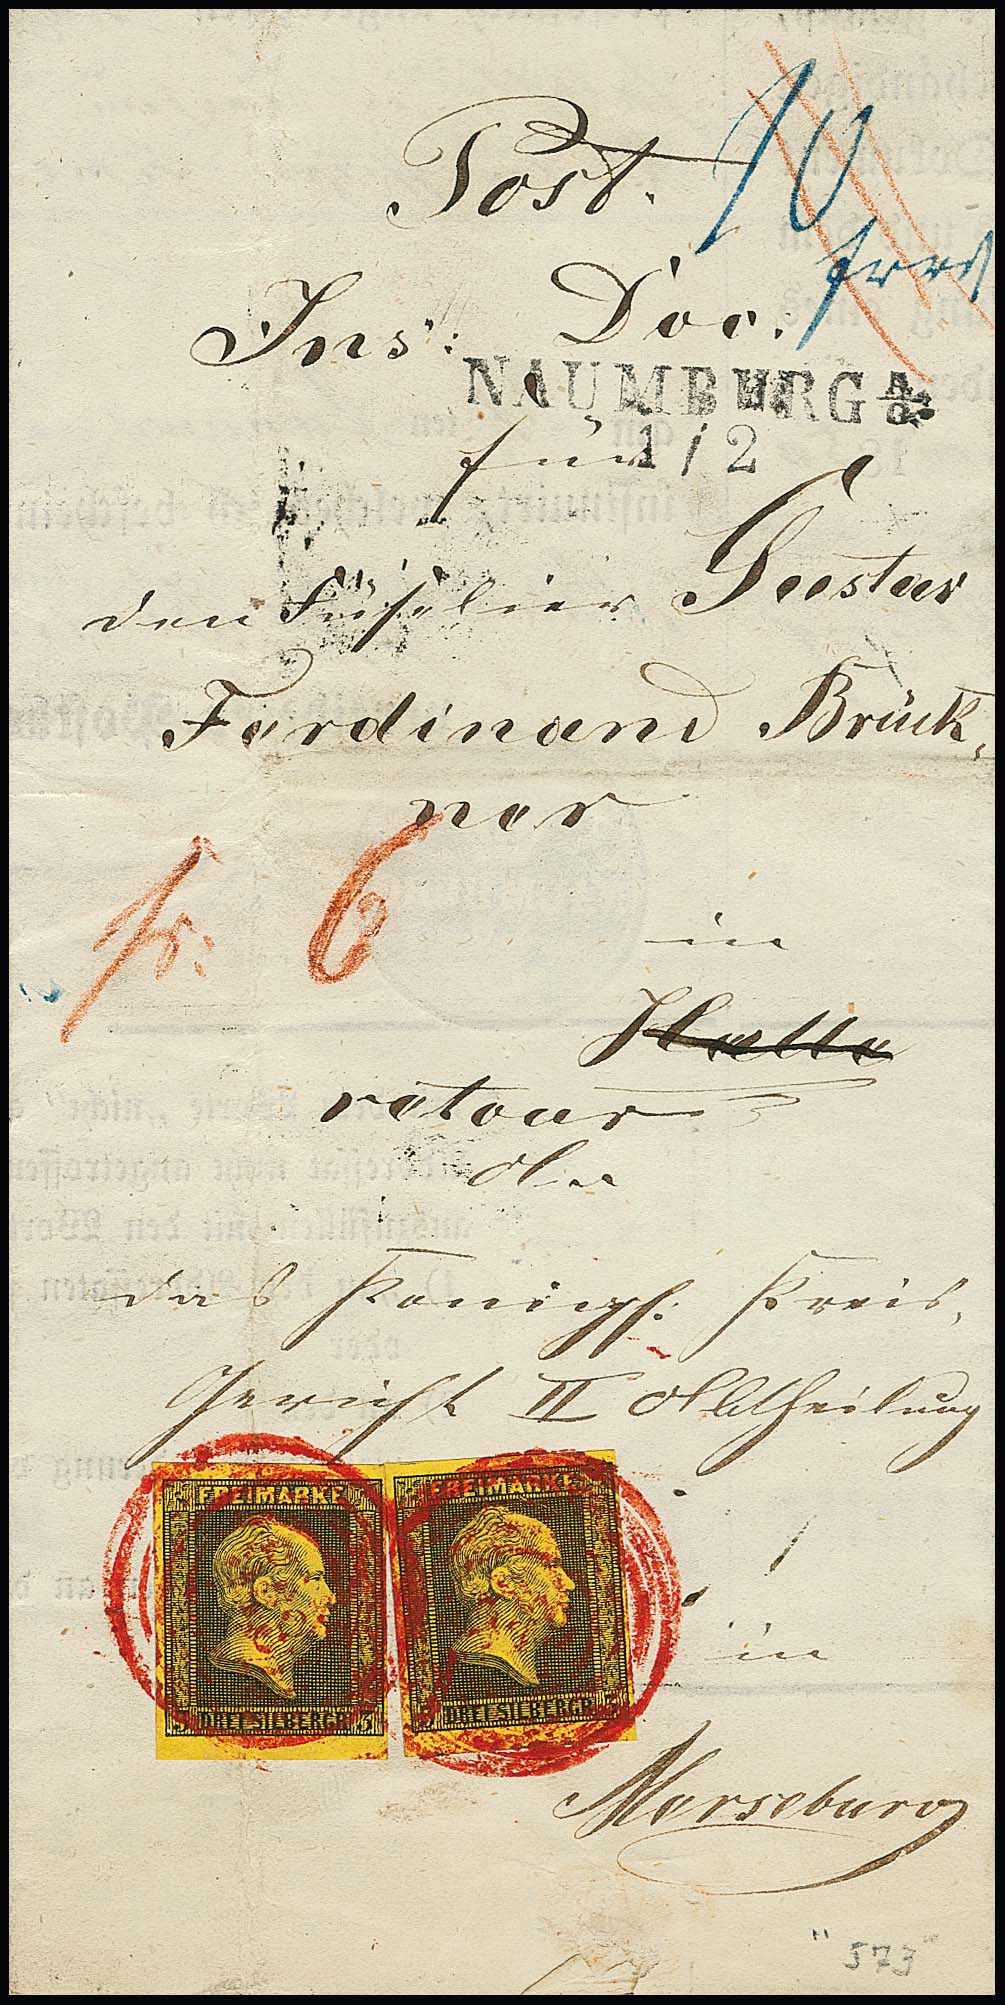 Post. 10
frco
Ins: Doc.
NAUMBURG A/S
1 / 2
für
den Füselier Gustav
Ferdinand Brück,
ner
fr. 6
in
Halle
retour
an
das Königl: Kreis,
Gericht II Abtheilung
FREIMARKE FREIMARKE
3 DREI SILBERGR. 3 DREI SILBERGR.
in
Merseburg
"573"